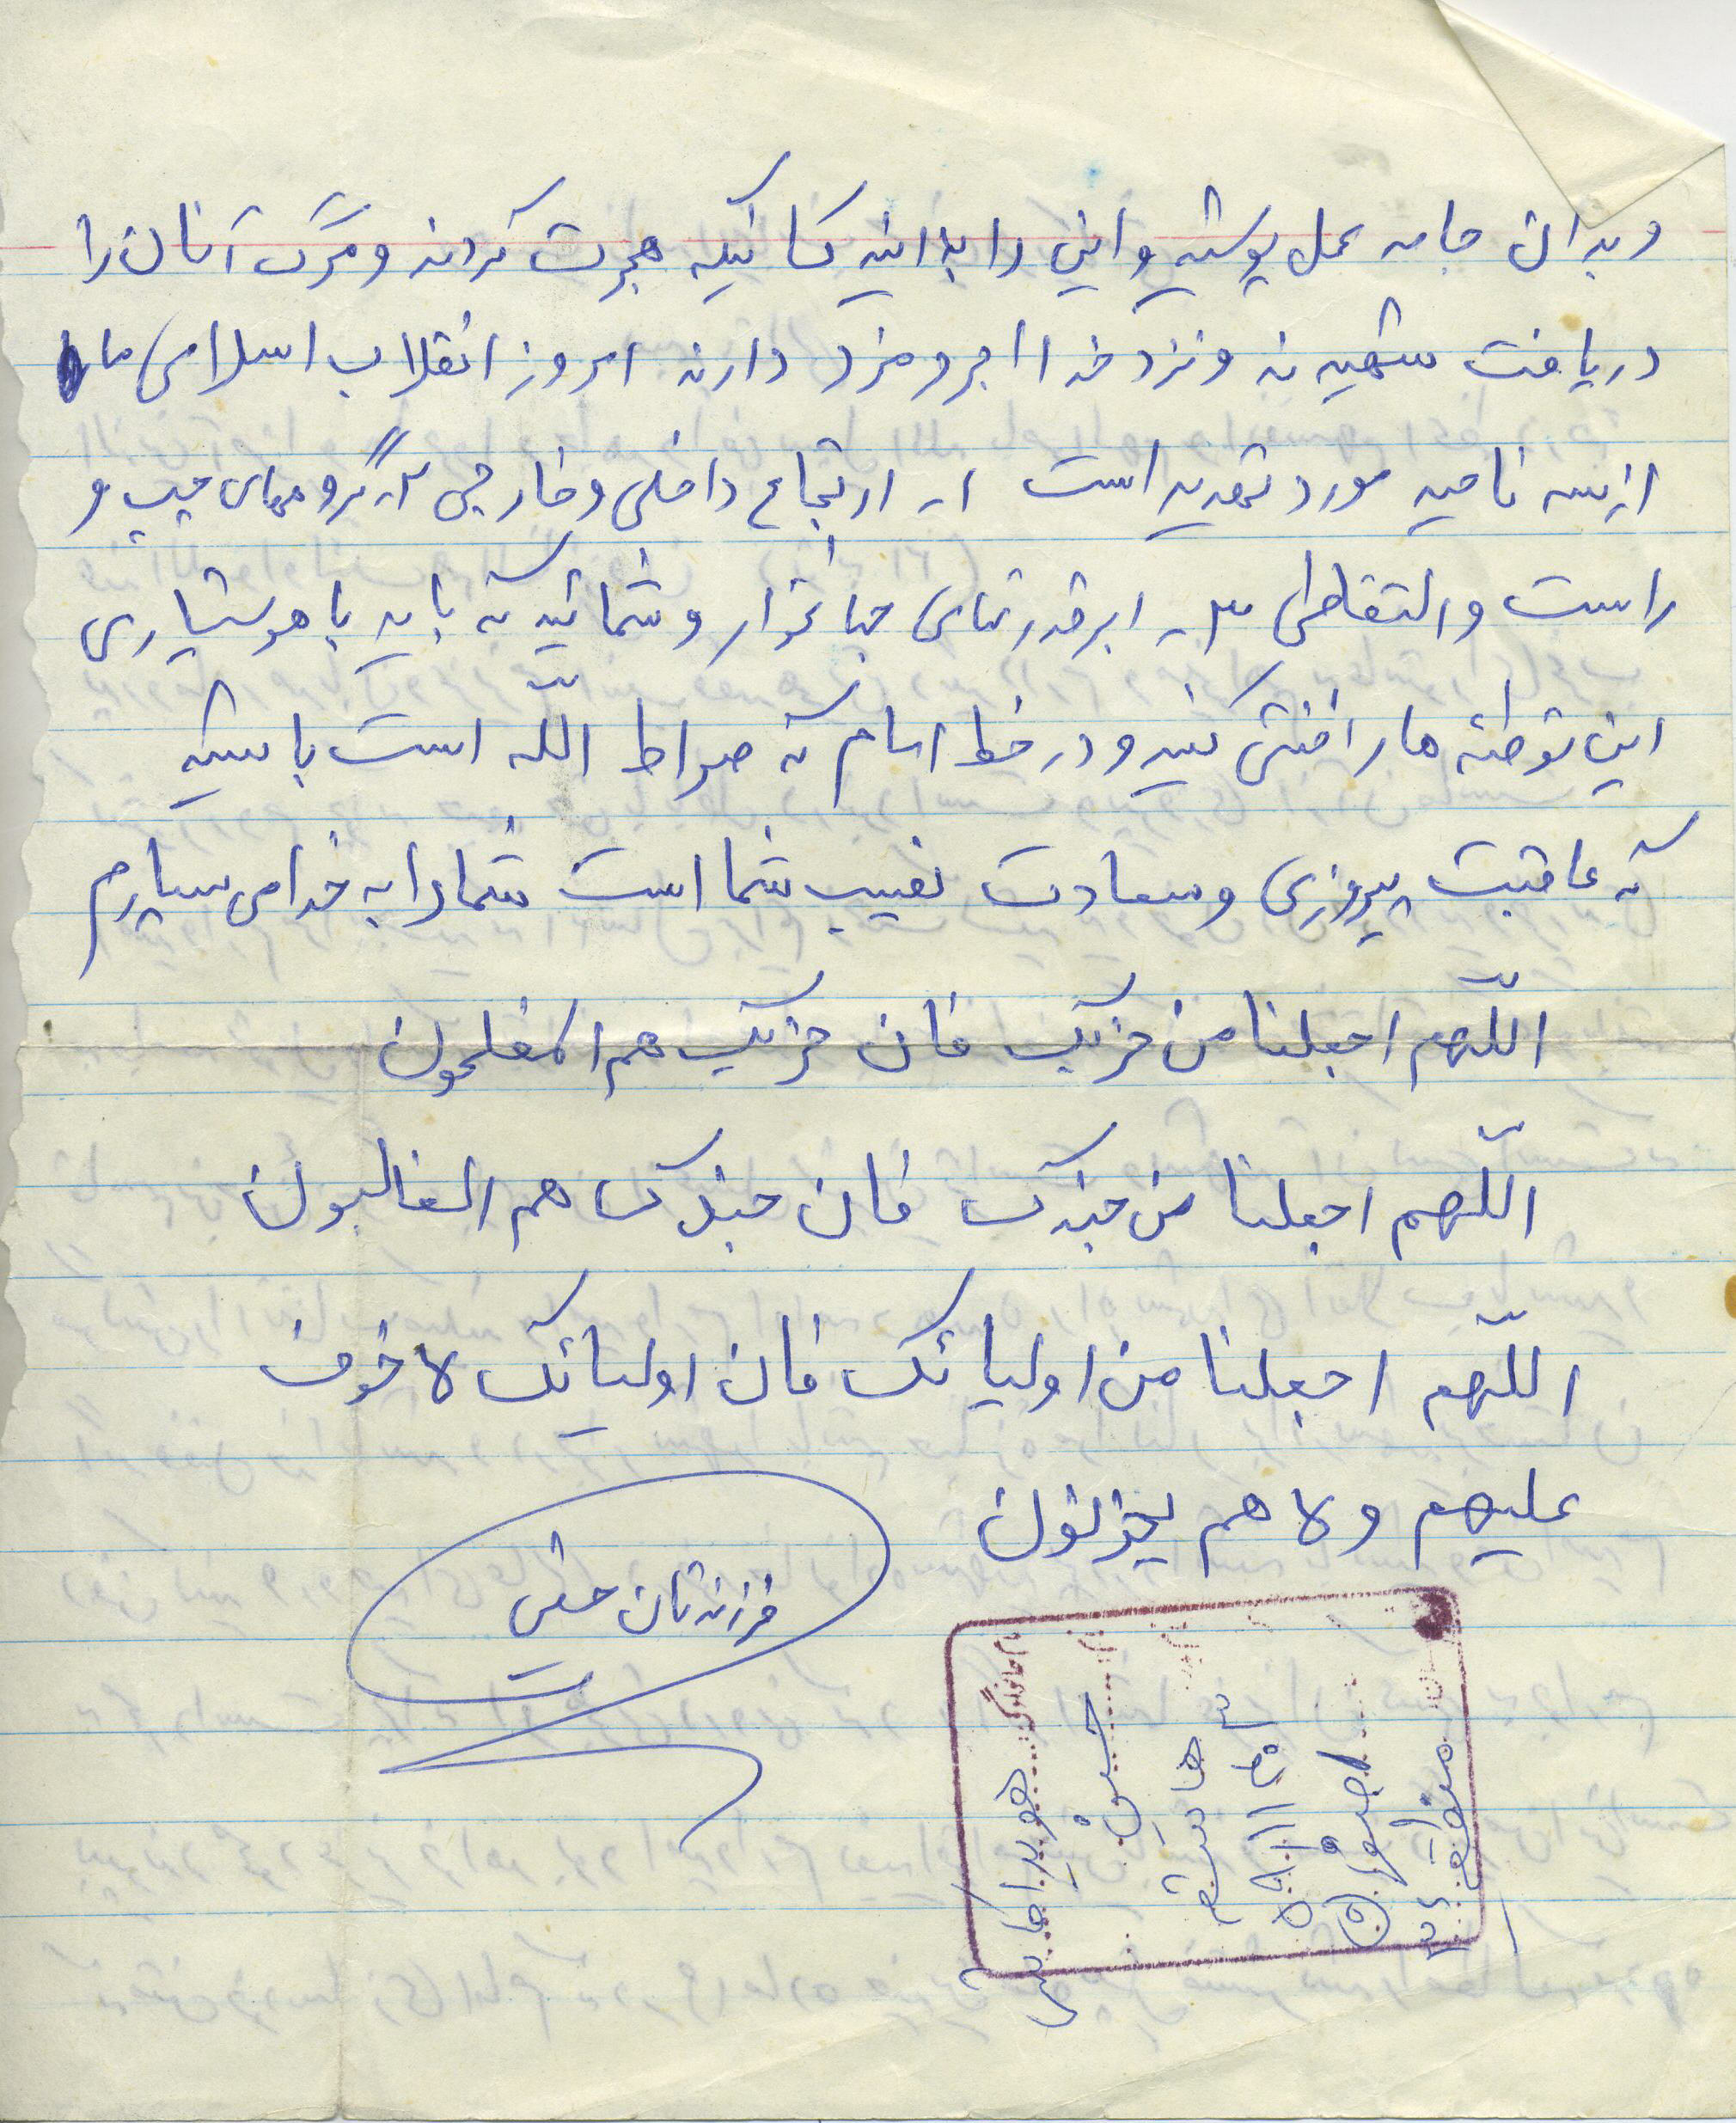 و بدان جامه عمل پوشید و این را بدانید کسانیکه هجرت کردند و مرگ آنان را
دریافت شهیدند و نزد خدا اجر و مزد دارند امروز انقلاب اسلامی ما
از سه ناحیه مورد تهدید است ۱ـ ارتجاع داخلی و خارجی ۲ـ گروههای چپ و
راست و التقاطی ۳ـ ابرقدرتهای جهانخوار و شمائید که باید با هوشیاری
این توطئه ها را خنثی کنید و در خط امام که صراط اللّه است باشید
که عاقبت پیروزی و سعادت نصیب شما است شما را به خدا می سپارم
اللّهم اجعلنا من حزبک فان حزبک هم المفلحون
اللّهم اجعلنا من جندک فان جندک هم الغالبون
اللّهم اجعلنا من اولیائک فان اولیائک لا خوف
علیهم ولا هم یحزنون
فرزندتان
نام خانوادگی
حسین
هاشم